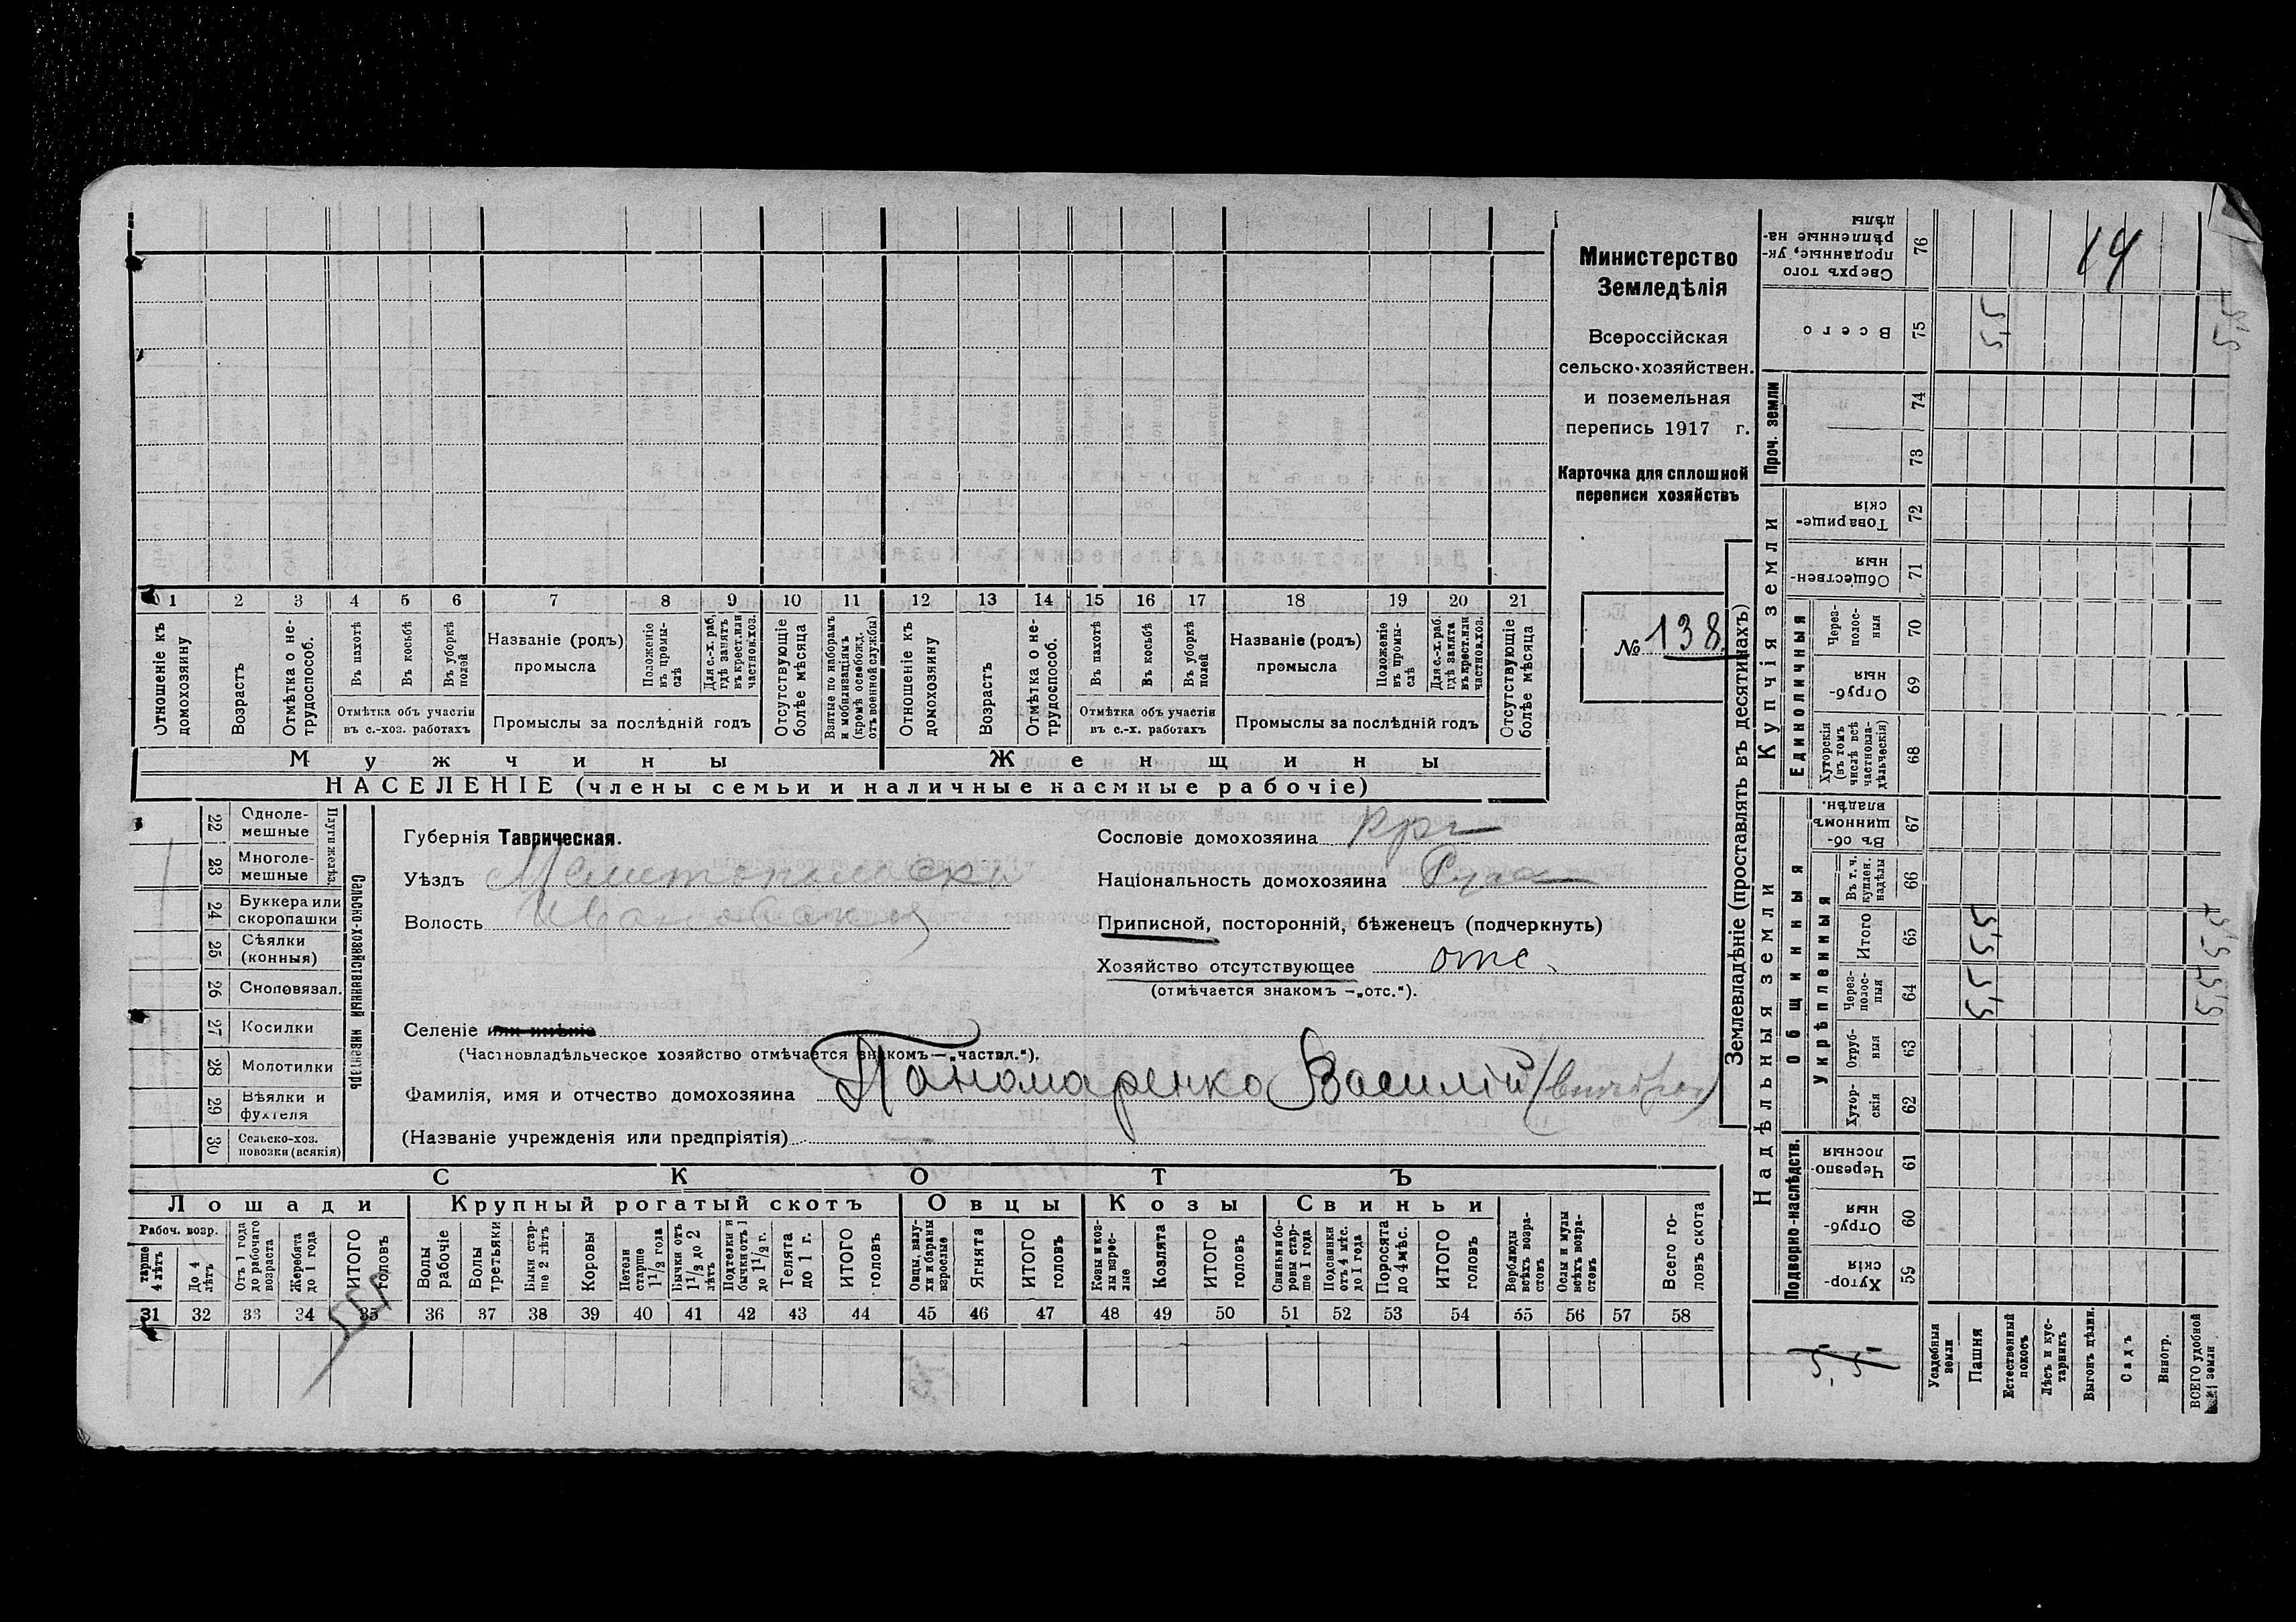 Министерство
Земледѣлія
Всероссійская
сельско-хозяйствен.
и поземельная
перепись 1917 г.
Карточка для сплошной
переписи хозяйствъ
№ 138
1 2 3 4 5 6 7 8 9 10 11 12 13 14 15 16 17 18 19 20 21
Отношеніе къ домохозяину
Возрастъ
Отмѣтка о не-трудоспособ.
Въ пахотѣ
Въ косьбѣ
Въ уборкѣ полей
Отмѣтка объ участіи
въ с.-хоз. работахъ
Названіе (родъ)
промысла
Положеніе въ промы-слѣ
Для с.-х. раб. гдѣ занятъ въ крест. или частнов. хоз.
Промыслы за послѣдній годъ
Отсутствующіе болѣе мѣсяца
Взятые по наборамъ и мобилизаціямъ (кромѣ освобожд. отъ военной службы)
Отношеніе къ домохозяину
Возрастъ
Отмѣтка о не-трудоспособ.
Въ пахотѣ
Въ косьбѣ
Въ уборкѣ полей
Отмѣтка объ участіи
въ с.-х. работахъ
Названіе (родъ)
промысла
Положеніе въ промы-слѣ
Для с.-х. раб. гдѣ занята въ крест. или частнов. хоз.
Промыслы за послѣдній годъ
Отсутствующіе болѣе мѣсяца
Мужчины Женщины
НАСЕЛЕНІЕ (члены семьи и наличные наемные рабочіе)
22 Одноле-мешные
23 Многоле-мешные
Плуги желѣз.
24 Буккера или скоропашки
25 Сѣялки (конныя)
26 Сноповязал.
27 Косилки
28 Молотилки
29 Вѣялки и фухтеля
30 Сельско-хоз. повозки (всякія)
Сельско-хозяйственный инвентарь
Губернія Таврическая.
Уѣздъ Мелитопольскій
Волость
Сословіе домохозяина кр
Національность домохозяина Русс
Приписной, посторонній, бѣженецъ (подчеркнуть)
Хозяйство отсутствующее отс.
(отмѣчается знакомъ —„отс.“).
Селеніе или имѣніе
(Частновладѣльческое хозяйство отмѣчается знакомъ—„частвл.“).
Фамилія, имя и отчество домохозяина Пономаренко Василій
(Названіе учрежденія или предпріятія)
СКОТЪ
Лошади Крупный рогатый скотъ Овцы Козы Свиньи
Рабоч. возр.
старше 4 лѣтъ
До 4 лѣтъ
Отъ 1 года до рабочаго возраста
Жеребята до 1 года
ИТОГО головъ
Волы рабочіе
Волы третьяки
Быки стар-ше 2 лѣтъ
Коровы
Нетели старше 1 1/2 года
Бычки отъ 1 1/2 до 2 лѣтъ
Подтелки и бычки отъ 1 до 1 1/2 г.
Телята до 1 г.
ИТОГО головъ
Овцы, валу-хи и бараны взрослые
Ягнята
ИТОГО головъ
Козы и коз-лы взрос-лые
Козлята
ИТОГО головъ
Свиньи и бо-ровы стар-ше 1 года
Подсвинки отъ 4 мѣс. до 1 года
Поросята до 4 мѣс.
ИТОГО головъ
Верблюды всѣхъ возра-стовъ
Ослы и мулы всѣхъ возра-стовъ
Всего го-ловъ скота
31 32 33 34 35 36 37 38 39 40 41 42 43 44 45 46 47 48 49 50 51 52 53 54 55 56 57 58
Землевладѣніе (проставлять въ десятинахъ)
Сверхъ того проданные, ук-рѣпленные на-дѣлы 76 14
Всего 75 5,5
Проч. земли 74 73
Купчія земли
Товарище-скія 72
Обществен-ныя 71
Единоличныя
Через-полос-ныя 70
Отруб-ныя 69
Хуторскія (въ томъ числѣ всѣ частновла-дѣльческія) 68
Надѣльныя земли
Общинныя
Въ об-щинномъ владѣн. 67
Укрѣпленныя
Въ т. ч. куплен. надѣлы 66
Итого 65 5,5
Через-полос-ныя 64 5,5
Отруб-ныя 63
Хутор-скія 62
Подворно-наслѣдств.
Черезпо-лосныя 61
Отруб-ныя 60
Хутор-скія 59
5,5
Усадебныя земли
Пашня
Естественный покосъ
Лѣсъ и кус-тарникъ
Выгонъ цѣлин.
Садъ
Виногр.
ВСЕГО удобной земли